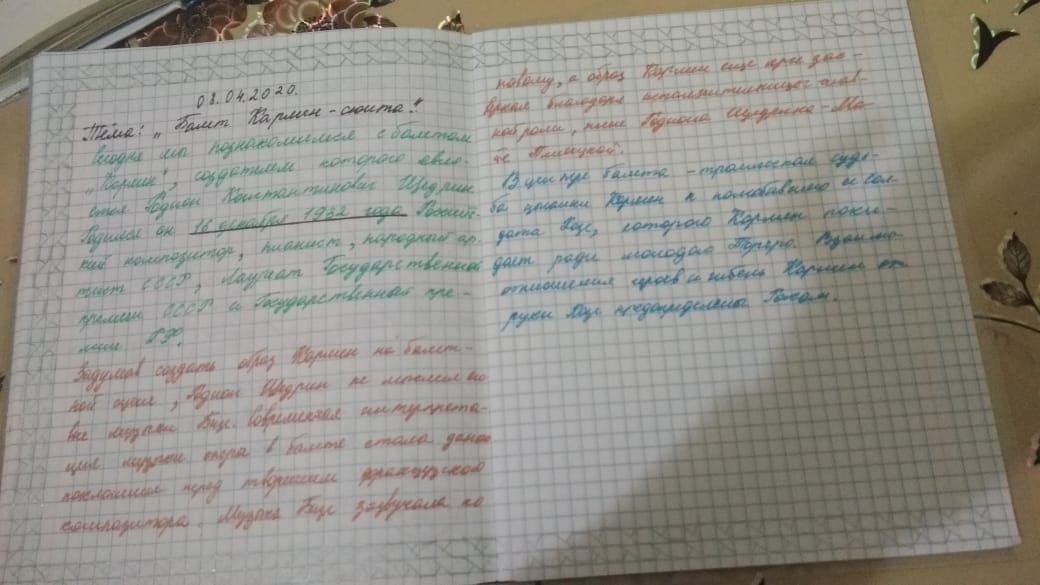 08.04.2020.
Тема: „Балет Кармен-сюита".
Сегодня мы познакомимся с балетом
„Кармен", создателем которого явля-
ется Родион Константинович Щедрин
Родился он 16 декабря 1932 года Россий-
кий композитор, пианист, народный ар-
тист СССР, Лауреат Государственной
премии СССР и Государственной пре-
мии РФ.
Задумав создать образ Кармен на балет-
ной сцене, Родион Щедрин не мыслил
вне музыки Бизе. Современная интерпрета-
ция музыки опера в балете стала данью
поклонения перед творением французского
композитора. Музыка Бизе зазвучала по
новому, а образ Кармен еще
ярким благодаря исполнительнице глав-
ной роли, жене Родиона Щедрина-Ма-
йе Плисецкой.
В центре балета - трагическая судь-
ба цыганки Кармен и полюбившего её сол-
дата Хозе, которого Кармен поки-
дает ради молодого Тореро. Взаимо-
отношения героев и гибель Кармен от
руки Хозе предопределены Роком.